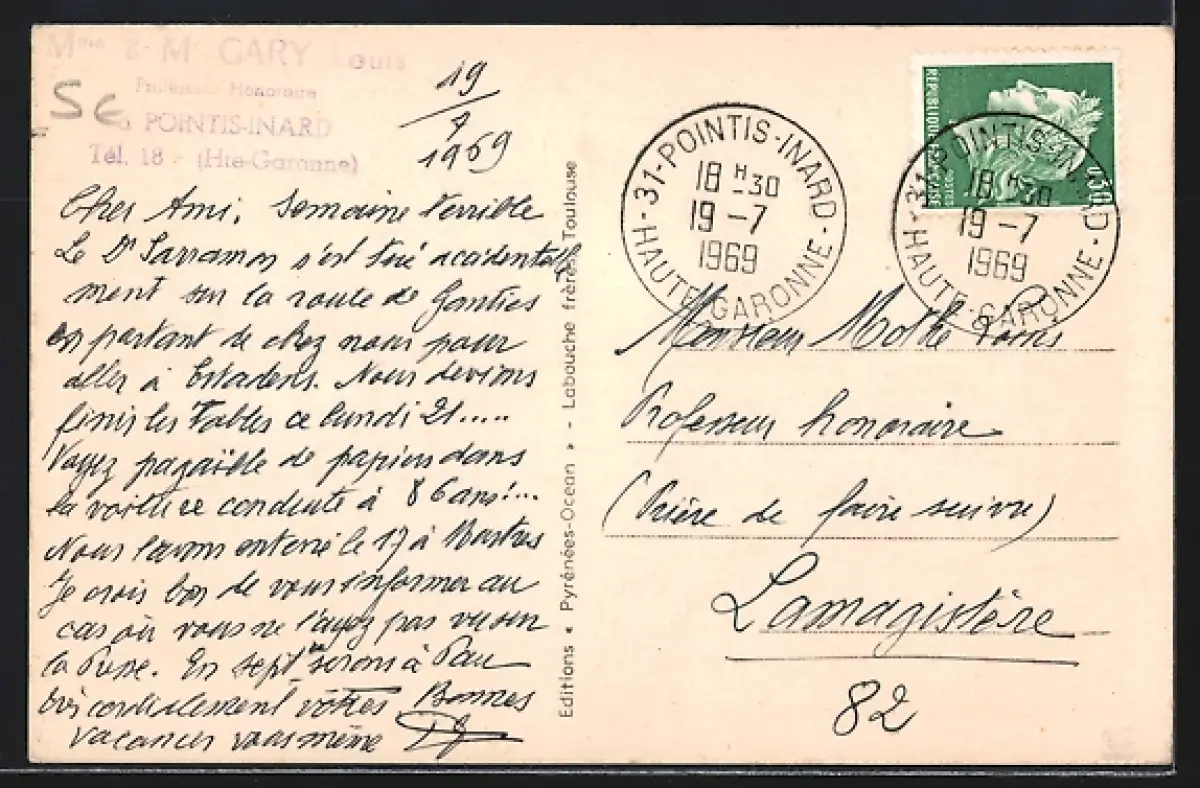 Mme & Mr GARY Louis
Professeur Honoraire
POINTIS-INARD
Tél. 18 - (Hte-Garonne)
19
7
1969
Cher Ami, Semaine terrible
Le Dr Sarramon s'est tué accidentelle
ment sur la route de Ganties
en partant de chez nous pour
aller à Estadens. Nous devions
finir les Tables ce lundi 21.....
Voyez pagaille de papiers dans
la voiture conduite à 86 ans!...
Nous l'avons enterré le 17 à Martres
Je crois bon de vous informer au
cas où vous ne l'ayez pas vu sur
la Presse. En sept serons à Pau
très cordialement vôtres Bonnes
vacances vous même
Editions « Pyrénées-Océan » - Labouche frères Toulouse
31-POINTIS-INARD
18 H 30
19-7
1969
HAUTE-GARONNE
REPUBLIQUE FRANCAISE
POSTES
0,30
31-POINTIS-INARD
18 H 30
19-7
1969
HAUTE-GARONNE
Monsieur Mothe Louis
Professeur honoraire
(Prière de faire suivre)
Lamagistère
82